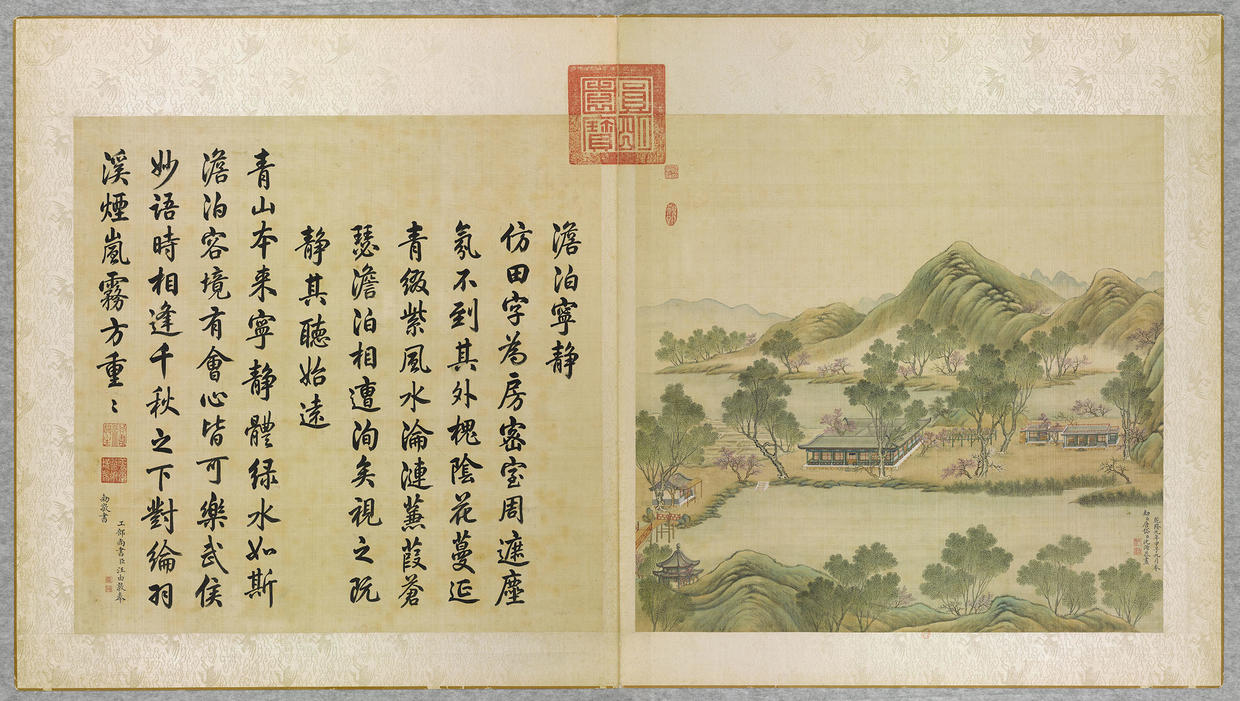 澹泊寧静
仿田字為房密室周遮塵
氛不到其外槐陰花蔓延
青綴紫風水淪漣蒹葭蒼
瑟澹泊相遭洵矣視之既
静其聽始遠
青山本来寧静體緑水如斯
澹泊容境有會心皆可樂武侯
妙語時相逢千秋之下對綸羽
溪煙嵐霧方重〻
工部尚書臣汪由敦奉
勅敬書
乾隆九年甲子九月奉
勅臣唐岱臣沈源恭畫